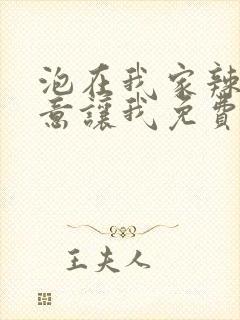 泡在我家辣
意讓我免費
王夫人